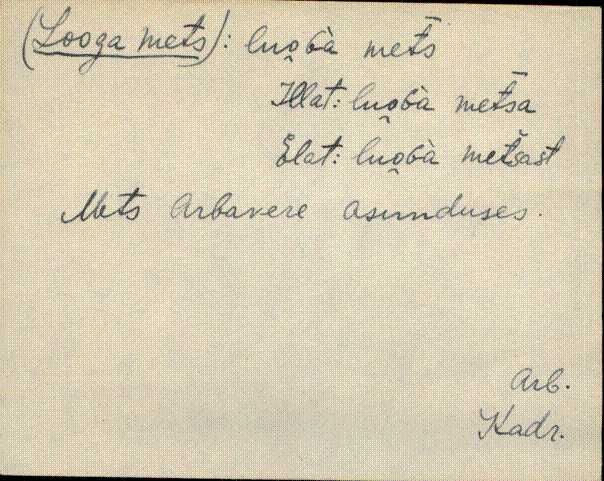 (Looga mets): luo̭ɢà met̄s
Illat: luo̭ɢà met̄sa
Elat: luo̭ɢà metsast
Mets Arbavere asunduses.
Arb.
Kadr.